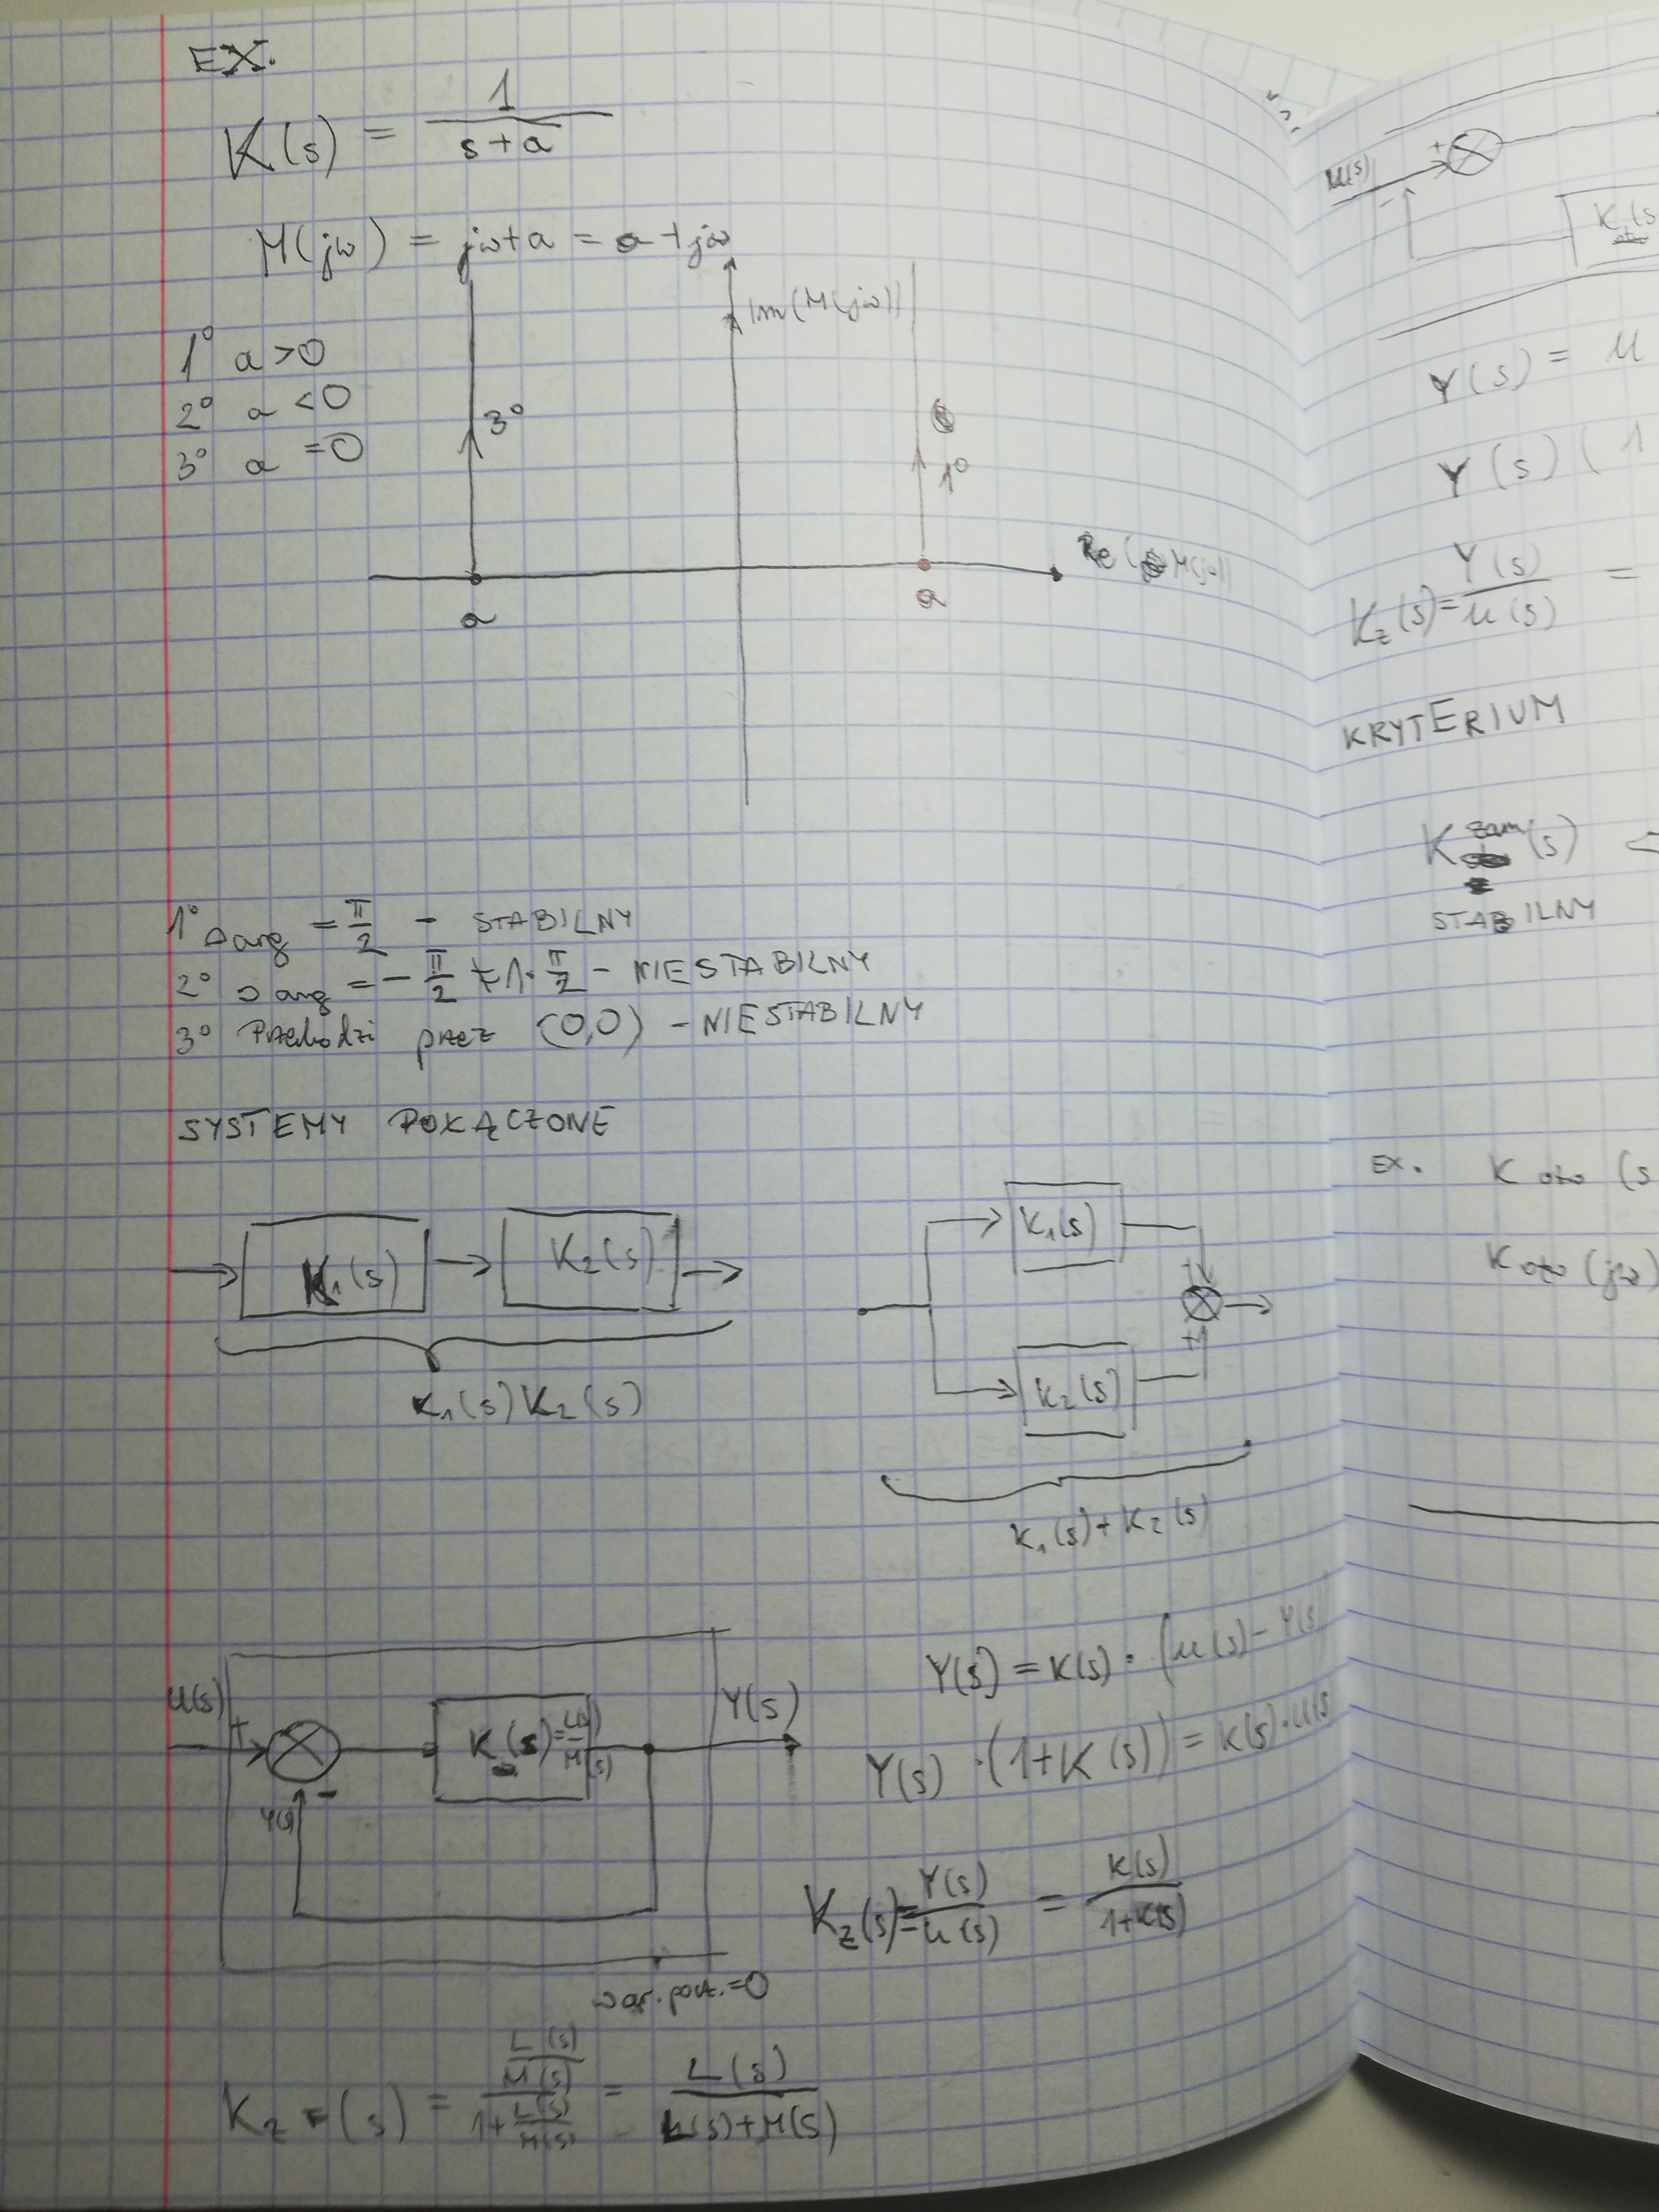 EX.
K(s) = 1 / (s+a)
M(jω) = jω+a = a+jω
Im(M(jω))
1° a >0
2° a <0
3° a =0
3°
1°
Re(M(jω))
a
a
1° Δarg = π/2 - STABILNY
2° Δarg = -π/2 ≠ 1·π/2 - NIESTABILNY
3° Przechodzi przez (0,0) - NIESTABILNY
SYSTEMY POŁĄCZONE
K1(s)
K2(s)
K1(s) K2(s)
K1(s)
+
+
K2(s)
K1(s)+K2(s)
U(s)
+
-
Y(s)
K(s)=L(s)/M(s)
Y(s)
war. pocz.=0
Y(s) = K(s) · (U(s) - Y(s)
Y(s) · (1+K(s)) = K(s)·U(s
Kz(s)= Y(s)/U(s) = K(s)/(1+K(s)
Kz (s) = (L(s)/M(s)) / (1+ L(s)/M(s)) = L(s) / (L(s)+M(s))
U(s)
+
-
K(s
Y(s) = U
Y(s) ( 1
Kz(s)= Y(s)/U(s) =
KRYTERIUM
K zam (s)
STABILNY
EX. K otw (s
K otw (jω)